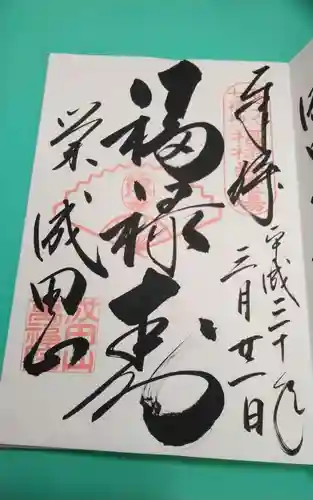 奉拝
平成三十年
三月廿一日
福禄寿
栄
成田山